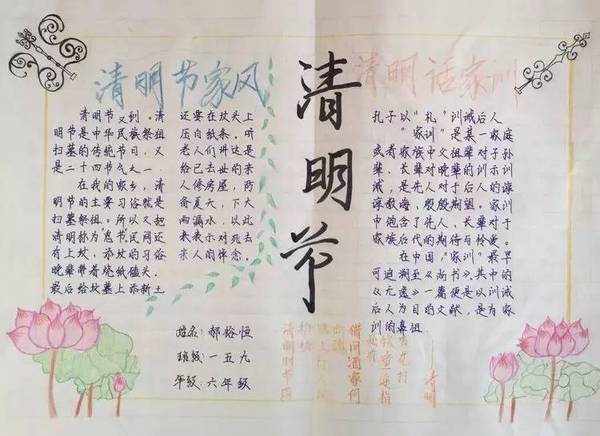 清明节家风
清明节
清明话家训
清明节又到。清
明节是中华民族祭祖
扫墓的传统节日，又
是二十四节气之一。
在我的家乡，清
明节的主要习俗就是
扫墓祭祖。所以又把
清明称为"鬼节"民间还
有上坟，添坟的习俗
晚辈带着烧纸磕头。
最后给坟墓上添新土
还要在坟头上
压向纸来。听
老人们讲这是
给已去世的亲
人修房屋，两
备夏天，下大
雨漏水，以此
来表示对死去
亲人的悼念。
姓名：郝裕恒
班级：一五九
年级：六年级
孔子以"礼"训诫后人
"家训"是某一家庭
或者家族中父祖辈对于孙
辈，长辈对晚辈的训示训
诫，是先人对于后人的谆
谆教诲，殷殷期望。家训
中饱含了先人，长辈对于
家族后代的期待与怜爱。
在中国，"家训"最早
可追溯至《尚书》，其中的
《无逸》一篇便是以训诫
后人为目的文献，是为家
训的鼻祖
清明
清明时节雨
借问酒家何